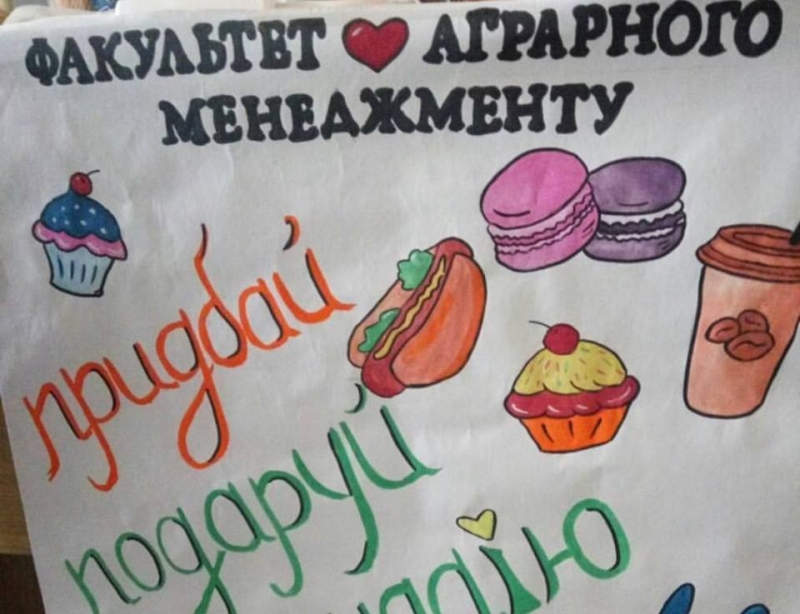 ФАКУЛЬТЕТ АГРАРНОГО
МЕНЕДЖМЕНТУ
придбай
подаруй